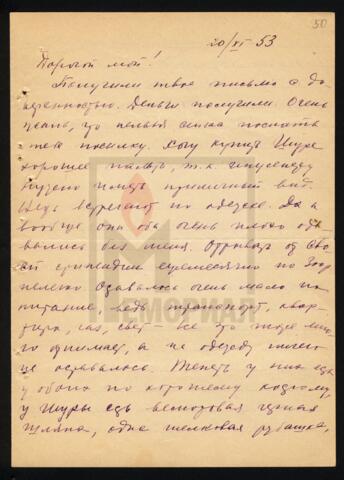 50
20/XI 53
Дорогой мой!
Получили твое письмо с до-
веренностью. Деньги получили. Очень
жаль, что нельзя снова послать
тебе посылку. Хочу купить Шуре
хорошее пальто, т.к.
нужно иметь приличный вид.
Ведь встречают по одежде. Да и
вообще они оба очень плохо оде-
вались без меня. Отрывая от сво-
ей стипендии ежемесячно по 200р
оставалось очень мало на
питание, ведь транспорт, квар-
тира, газ, свет – все это тоже мно-
го отнимает, а на одежду ничего
не оставалось. Теперь у них есть
у обоих по хорошему костюму,
у Шуры есть велюровая черная
шляпа, одна шелковая рубашка,
МЕМОРИАЛ